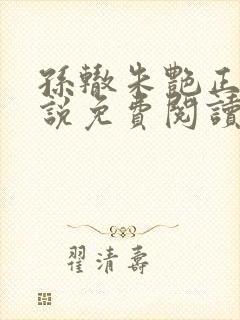 孫轍朱艷正
說免費閱讀
翟清壽